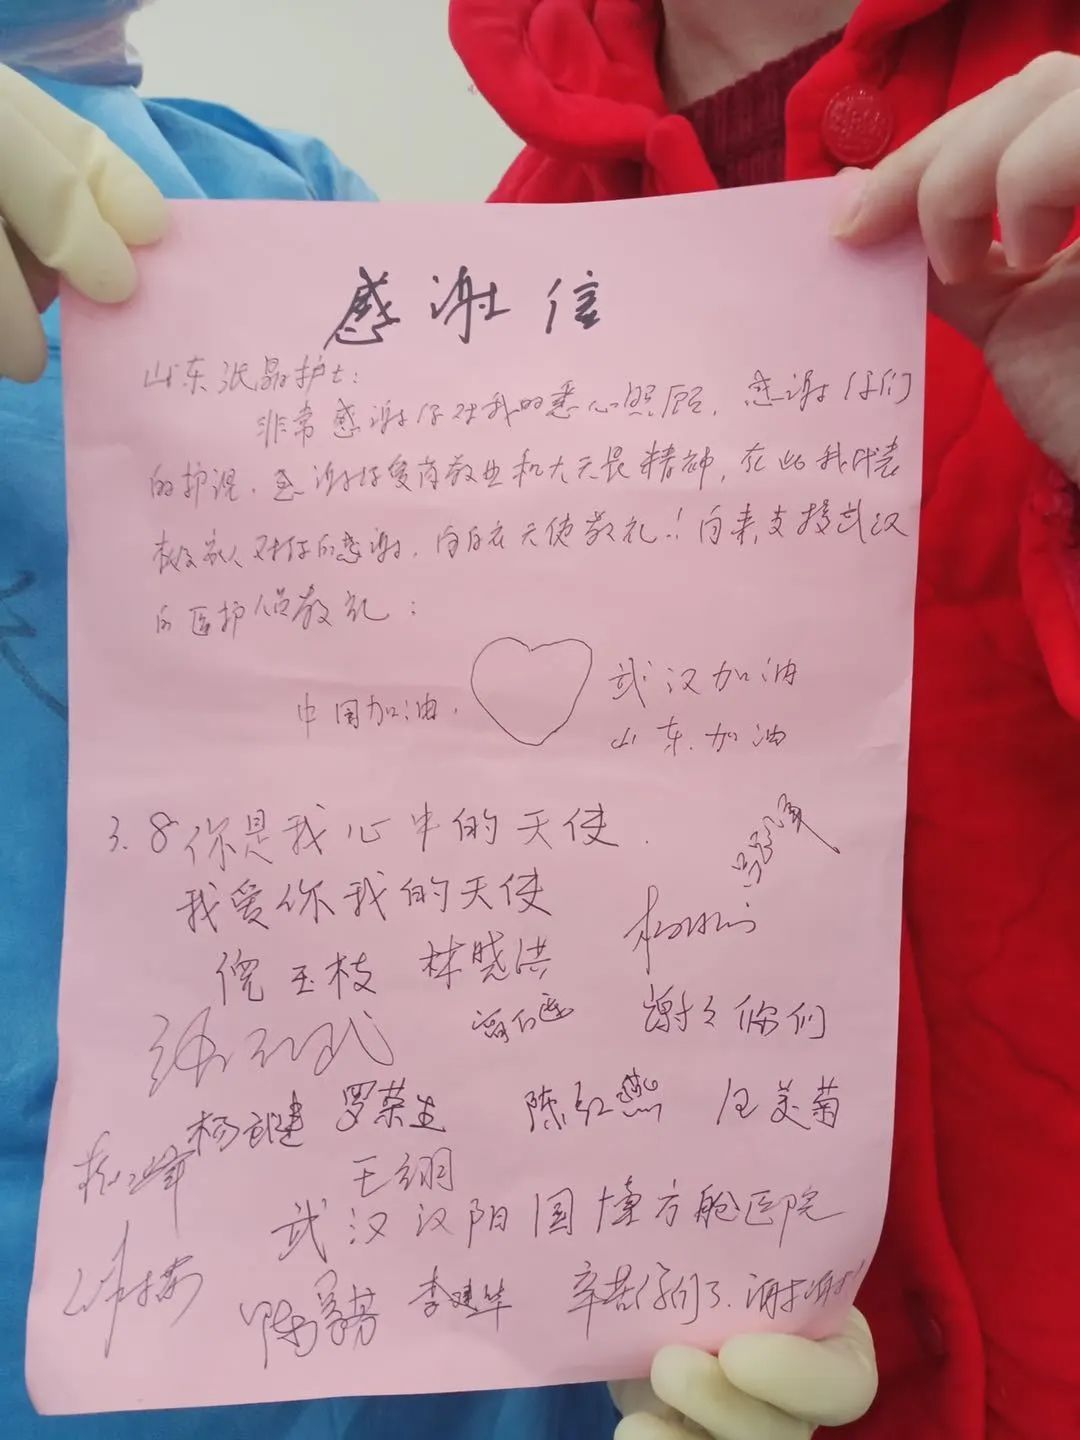 感谢信
山东张晶护士：
非常感谢你对我的悉心照顾，感谢你们
的护理，感谢你爱岗敬业和大无畏精神，在此我代表
家人对你的感谢，向白衣天使敬礼！向来支援武汉
的医护人员敬礼：
中国加油．
武汉加油
山东加油
3.8你是我心中的天使．
我爱你我的天使
倪玉枝 林晓洪
谢谢你们
罗荣生 陈红燕 任美菊
武汉汉阳国博方舱医院
李建华 辛苦你们了．谢谢！